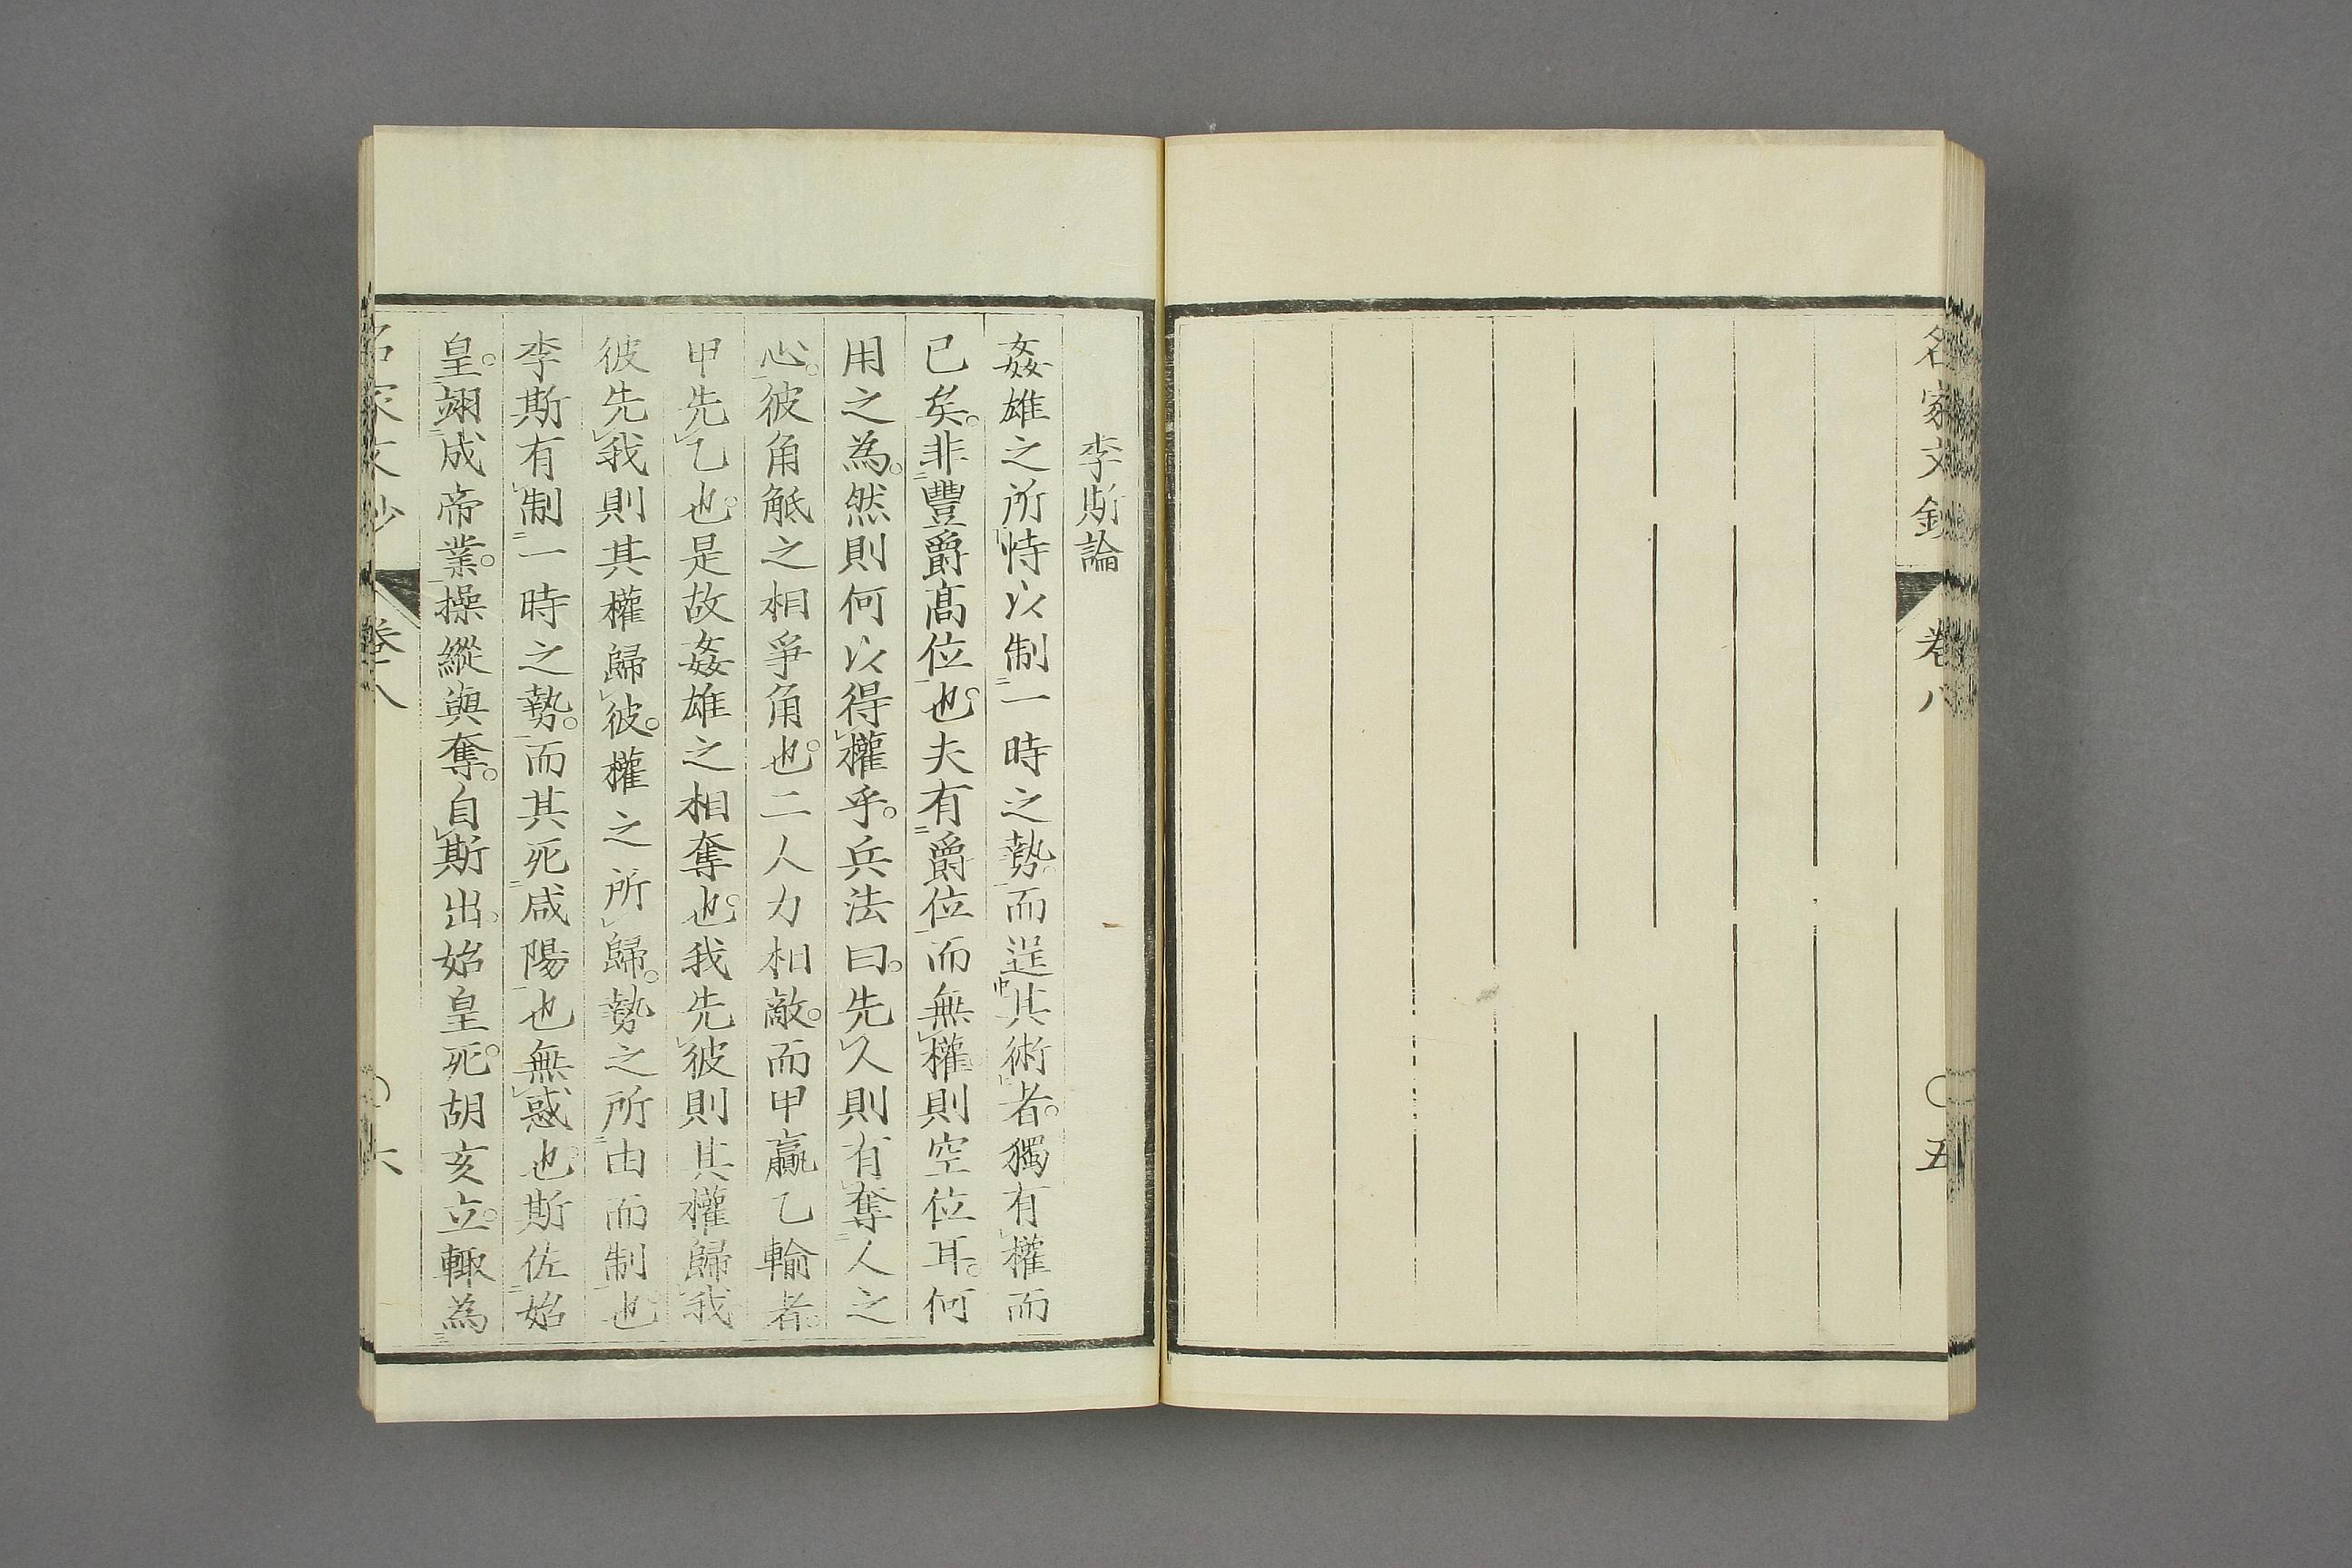 名家文鈔 卷八 ○五
李斯論
姦雄之所恃以制一時之勢。而逞其術者。獨有權而
已矣。非豐爵高位也。夫有爵位而無權則空位耳。何
用之為。然則何以得權乎。兵法曰。先人則有奪人之
心。彼角觝之相爭角也。二人力相敵。而甲贏乙輸者。
甲先乙也。是故姦雄之相奪也。我先彼則其權歸我
彼先我則其權歸彼。權之所歸。勢之所由而制也
李斯有制一時之勢。而其死咸陽也無惑也。斯佐始
皇。翊成帝業。操縱與奪。自斯出。始皇死。胡亥立。輙為
名家文鈔 卷八 ○六